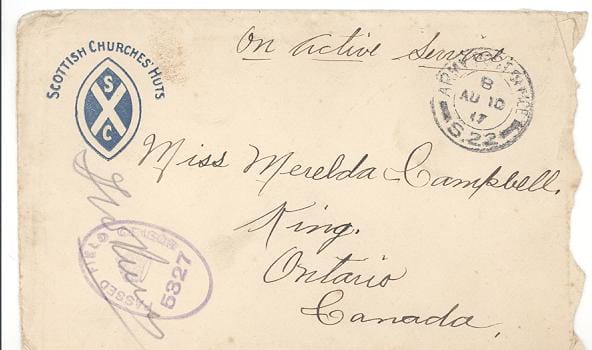 On Active Service
SCOTTISH CHURCHES' HUTS
S
C
ARMY POST OFFICE
8
AU 10
17
S.22
Miss Merelda Campbell,
King.
Ontario
Canada,
PASSED FIELD
5327